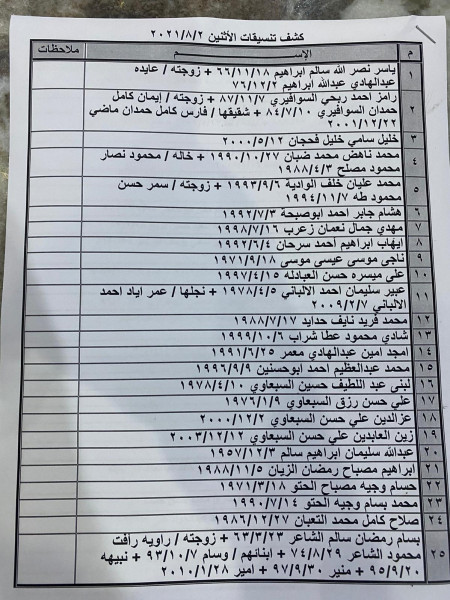 كشف تنسيقات الأثنين ٢٠٢١/٨/٢
م الإســـــــم ملاحظات
١ ياسر نصر الله سالم ابراهيم ٦٦/١١/١٨ + زوجته / عايده
عبدالهادي عبدالله ابراهيم ٧٦/١٢/٢
٢ رامز احمد ربحي السوافيري ٨٧/١١/٧ + زوجته / إيمان كامل
حمدان السوافيري ٨٤/٧/١٠ + شقيقها / فارس كامل حمدان ماضي
٢٠٠١/١٢/٢٢
٣ خليل سامي خليل فحجان ٢٠٠٠/٥/١٢
٤ محمد ناهض محمد ضبان ١٩٩٠/١٠/٢٧ + خاله / محمود نصار
محمود مصلح ١٩٨٨/٤/٣
٥ محمد عليان خلف الوادية ١٩٩٣/٩/٦ + زوجته / سمر حسن
محمود طه ١٩٩٤/١١/٧
٦ هشام جابر احمد ابوصبحة ١٩٩٢/٧/٣
٧ مهدي جمال نعمان زعرب ١٩٩٨/٧/١٦
٨ ايهاب ابراهيم أحمد سرحان ١٩٩٢/٦/٤
٩ ناجي موسى عيسى موسى ١٩٧١/٩/١٨
١٠ علي ميسره حسن العبادله ١٩٩٧/٤/١٥
١١ عبير سليمان احمد الالباني ١٩٧٨/٤/٥ + نجلها / عمر اياد احمد
الالباني ٢٠٠٩/٢/٧
١٢ محمد فريد نايف حدايد ١٩٨٨/٧/١٧
١٣ شادي محمود عطا شراب ١٩٩٩/١٠/٦
١٤ امجد امين عبدالهادي معمر ١٩٩١/٦/٢٥
١٥ محمد عبدالعظيم احمد ابوحسنين ١٩٩٦/٩/٩
١٦ لبنى عبد اللطيف حسين السبعاوي ١٩٧٨/٤/١٠
١٧ علي حسن رزق السبعاوي ١٩٧٦/١/٩
١٨ عزالدين علي حسن السبعاوي ٢٠٠٠/١٢/٢
١٩ زين العابدين علي حسن السبعاوي ٢٠٠٣/١٢/١٢
٢٠ عبدالله سليمان ابراهيم سالم ١٩٥٧/١٢/٣
٢١ ابراهيم مصباح رمضان الزيان ١٩٨٨/١١/٥
٢٢ حسام وجيه مصباح الحتو ١٩٧١/٣/١٨
٢٣ محمد بسام وجيه الحتو ١٩٩٠/٧/١٤
٢٤ صلاح كامل محمد التعبان ١٩٨٦/١٢/٢٧
٢٥ بسام رمضان سالم الشاعر ٦٣/٣/٢٣ + زوجته / راويه رافت
محمود الشاعر ٧٤/٨/٢٩ + ابنائهم / وسام ٩٣/١٠/٧ + نبيهه
٩٥/٩/٢٠ + منير ٩٧/٩/٣٠ + أمير ٢٠١٠/١/٢٨